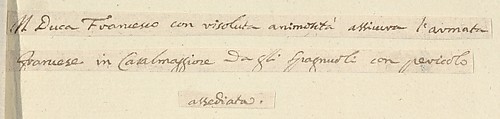 Il Duca Francesco con risoluta animosità assicura l'armata
francese in Casalmaggiore da gli spagnuoli con pericolo
assediata.